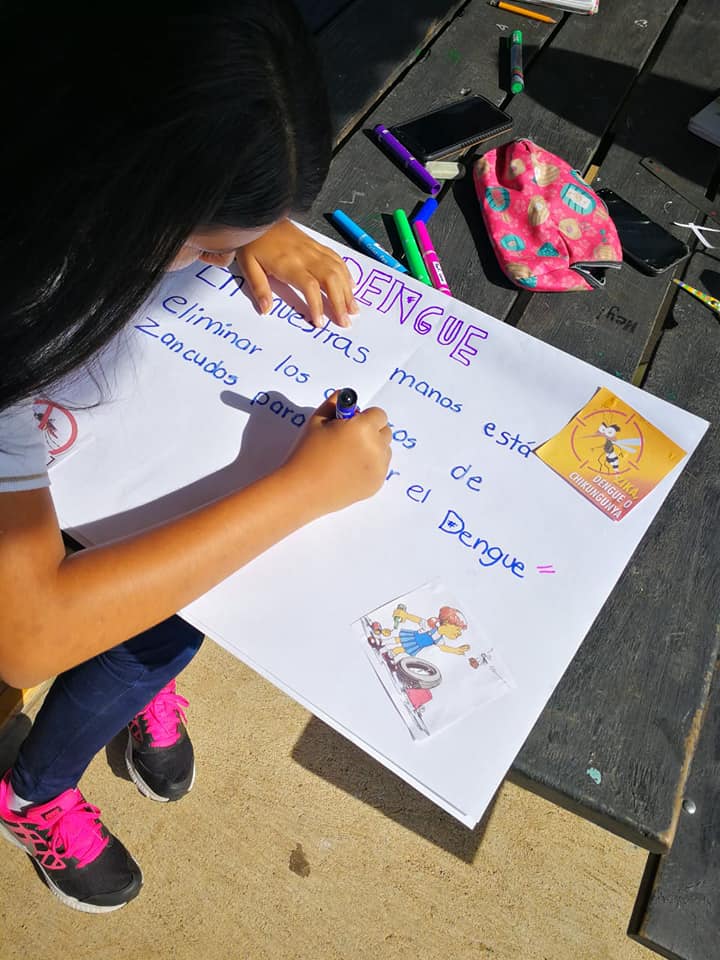 DENGUE
En nuestras manos está
eliminar los de
Zancudos para el Dengue
ZIKA,
DENGUE O
CHIKUNGUNYA
Hey!